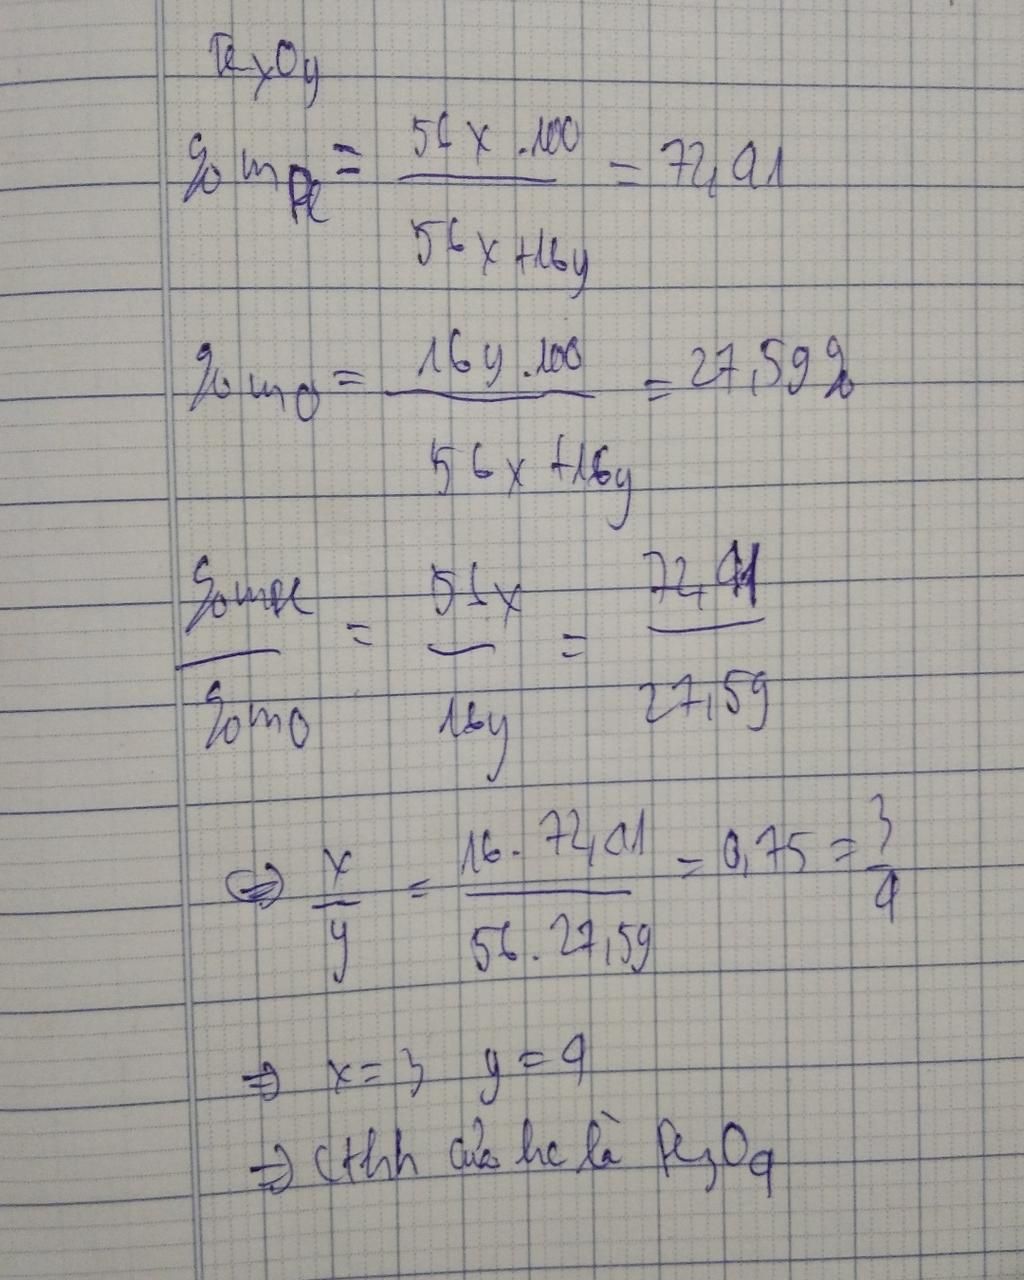 FexOy
%mFe = 56x.100 / 56x+16y = 72,41
%mO = 16y.100 / 56x+16y = 27,59%
%mFe / %mO = 56x / 16y = 72,41 / 27,59
⇔ x / y = 16.72,41 / 56.27,59 = 0,75 = 3 / 4
⇒ x=3 y=4
⇒ cthh của hc là Fe3O4